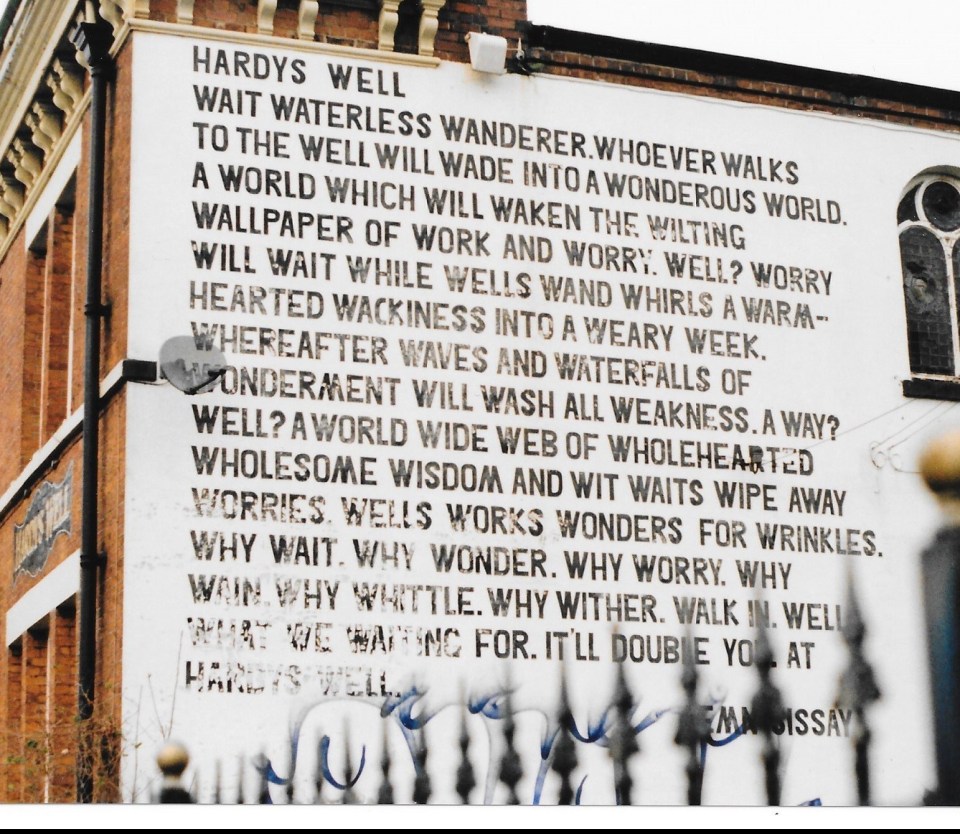 HARDYS WELL
WAIT WATERLESS WANDERER. WHOEVER WALKS
TO THE WELL WILL WADE INTO A WONDEROUS WORLD.
A WORLD WHICH WILL WAKEN THE WILTING
WALLPAPER OF WORK AND WORRY. WELL? WORRY
WILL WAIT WHILE WELLS WAND WHIRLS A WARM-
HEARTED WACKINESS INTO A WEARY WEEK.
WHEREAFTER WAVES AND WATERFALLS OF
WONDERMENT WILL WASH ALL WEAKNESS. A WAY?
WELL? A WORLD WIDE WEB OF WHOLEHEARTED
WHOLESOME WISDOM AND WIT WAITS WIPE AWAY
WORRIES. WELLS WORKS WONDERS FOR WRINKLES.
WHY WAIT. WHY WONDER. WHY WORRY. WHY
WAIN. WHY WHITTLE. WHY WITHER. WALK IN. WELL
WHAT WE WAITING FOR. IT'LL DOUBLE YOU. AT
HARDYS WELL.
LEMN SISSAY